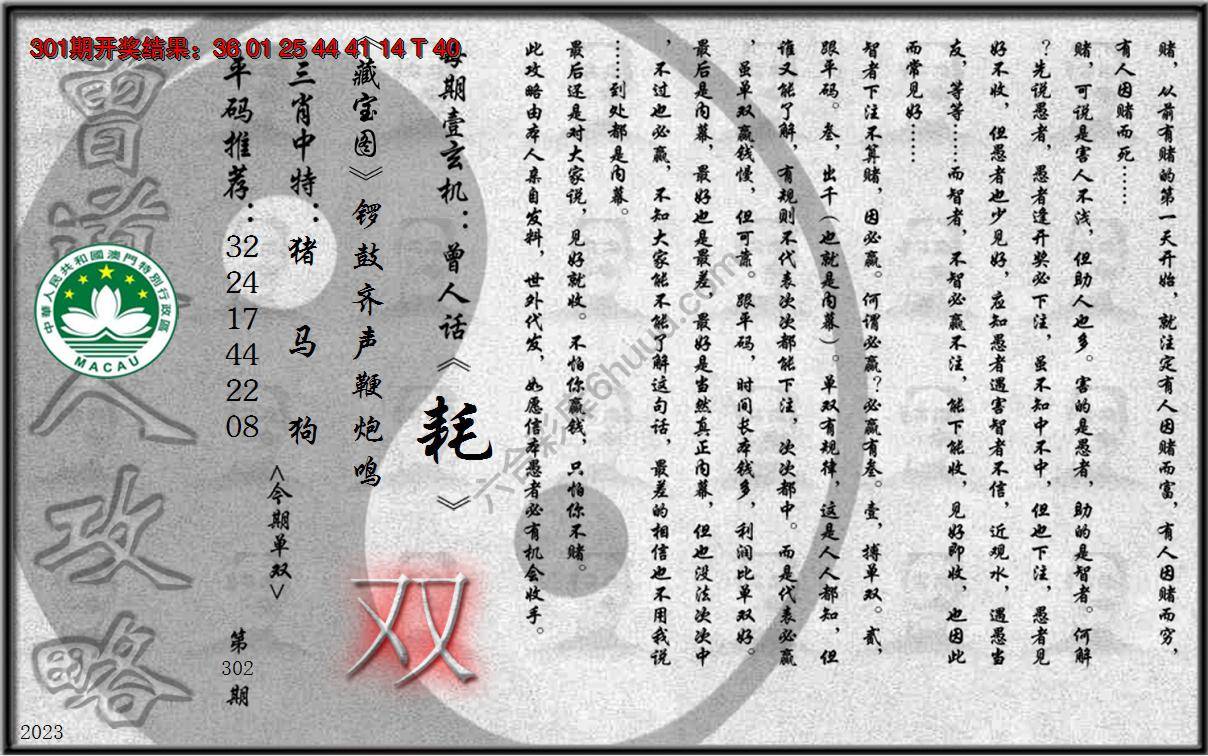 301期开奖结果：36 01 25 44 41 14 T 40
赌，从前有赌的第一天开始，就注定有人因赌而富，有人因赌而穷，
有人因赌而死……
赌，可说是害人不浅，但助人也多。害的是愚者，助的是智者。何解
？先说愚者，愚者逢开奖必下注，虽不知中不中，但也下注，愚者见
好不收，但愚者也少见好，应知愚者遇害智者不信，近观水，遇愚当
友，等等……而智者，不智必赢不注，能下能收，见好即收，也因此
而常见好……
智者下注不算赌，因必赢。何谓必赢？必赢有叁。壹，搏单双。贰，
跟平码。叁，出千（也就是内幕）。单双有规律，这是人人都知，但
谁又能了解，有规则不代表次次都能下注，次次都中。而是代表必赢
，虽单双赢钱慢，但可靠。跟平码，时间长本钱多，利润比单双好。
最后是内幕，最好也是最差，最好是当然真正内幕，但也没法次次中
，不过也必赢，不知大家能不能了解这句话，最差的相信也不用我说
……到处都是内幕。
最后还是对大家说，见好就收。不怕你赢钱，只怕你不赌。
此攻略由本人亲自发料，世外代发，如愿信本愚者必有机会收手。
每期壹玄机：曾人话《耗》
《藏宝图》锣鼓齐声鞭炮鸣
三肖中特：猪 马 狗
平码推荐：32 24 17 44 22 08
<今期单双>
双
第302期
曾道人攻略
中華人民共和國澳門特別行政區
MACAU
2023
六合彩库6huuu.com